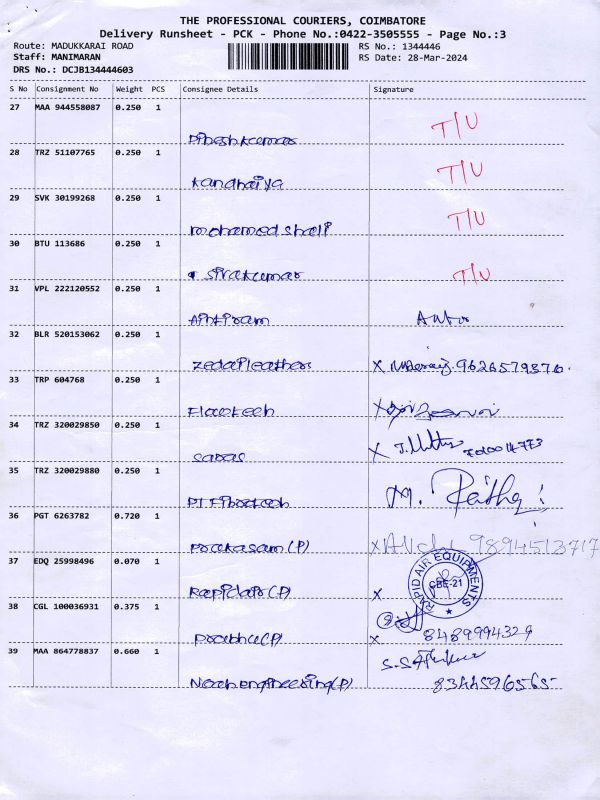 THE PROFESSIONAL COURIERS, COIMBATORE
Delivery Runsheet - PCK - Phone No.:0422-3505555 - Page No.:3
Route: MADUKKARAI ROAD RS No.: 1344446
Staff: MANIMARAN RS Date: 28-Mar-2024
DRS No.: DCJB134444603
S No Consignment No Weight PCS Consignee Details Signature
27 MAA 944558087 0.250 1
Dineshkumar T/U
28 TRZ 51107765 0.250 1
Kandhaiya T/U
29 SVK 30199268 0.250 1
mohamed shafi T/U
30 BTU 113686 0.250 1
Sivakumar T/U
31 VPL 222120552 0.250 1
32 BLR 520153062 0.250 1
Zedapleathers X 9626579376
33 TRP 604768 0.250 1
Flowtech X
34 TRZ 320029850 0.250 1
X
35 TRZ 320029880 0.250 1
M.
36 PGT 6263782 0.720 1
Prakasam (P) X 9894513717
37 EDQ 25998496 0.070 1
RAPID AIR EQUIPMENTS
CBE-21
Rapidair (P) X
38 CGL 100036931 0.375 1
Prabhu (P) X 8489994329
39 MAA 864778837 0.660 1
Noah engineering (P) 8344596565